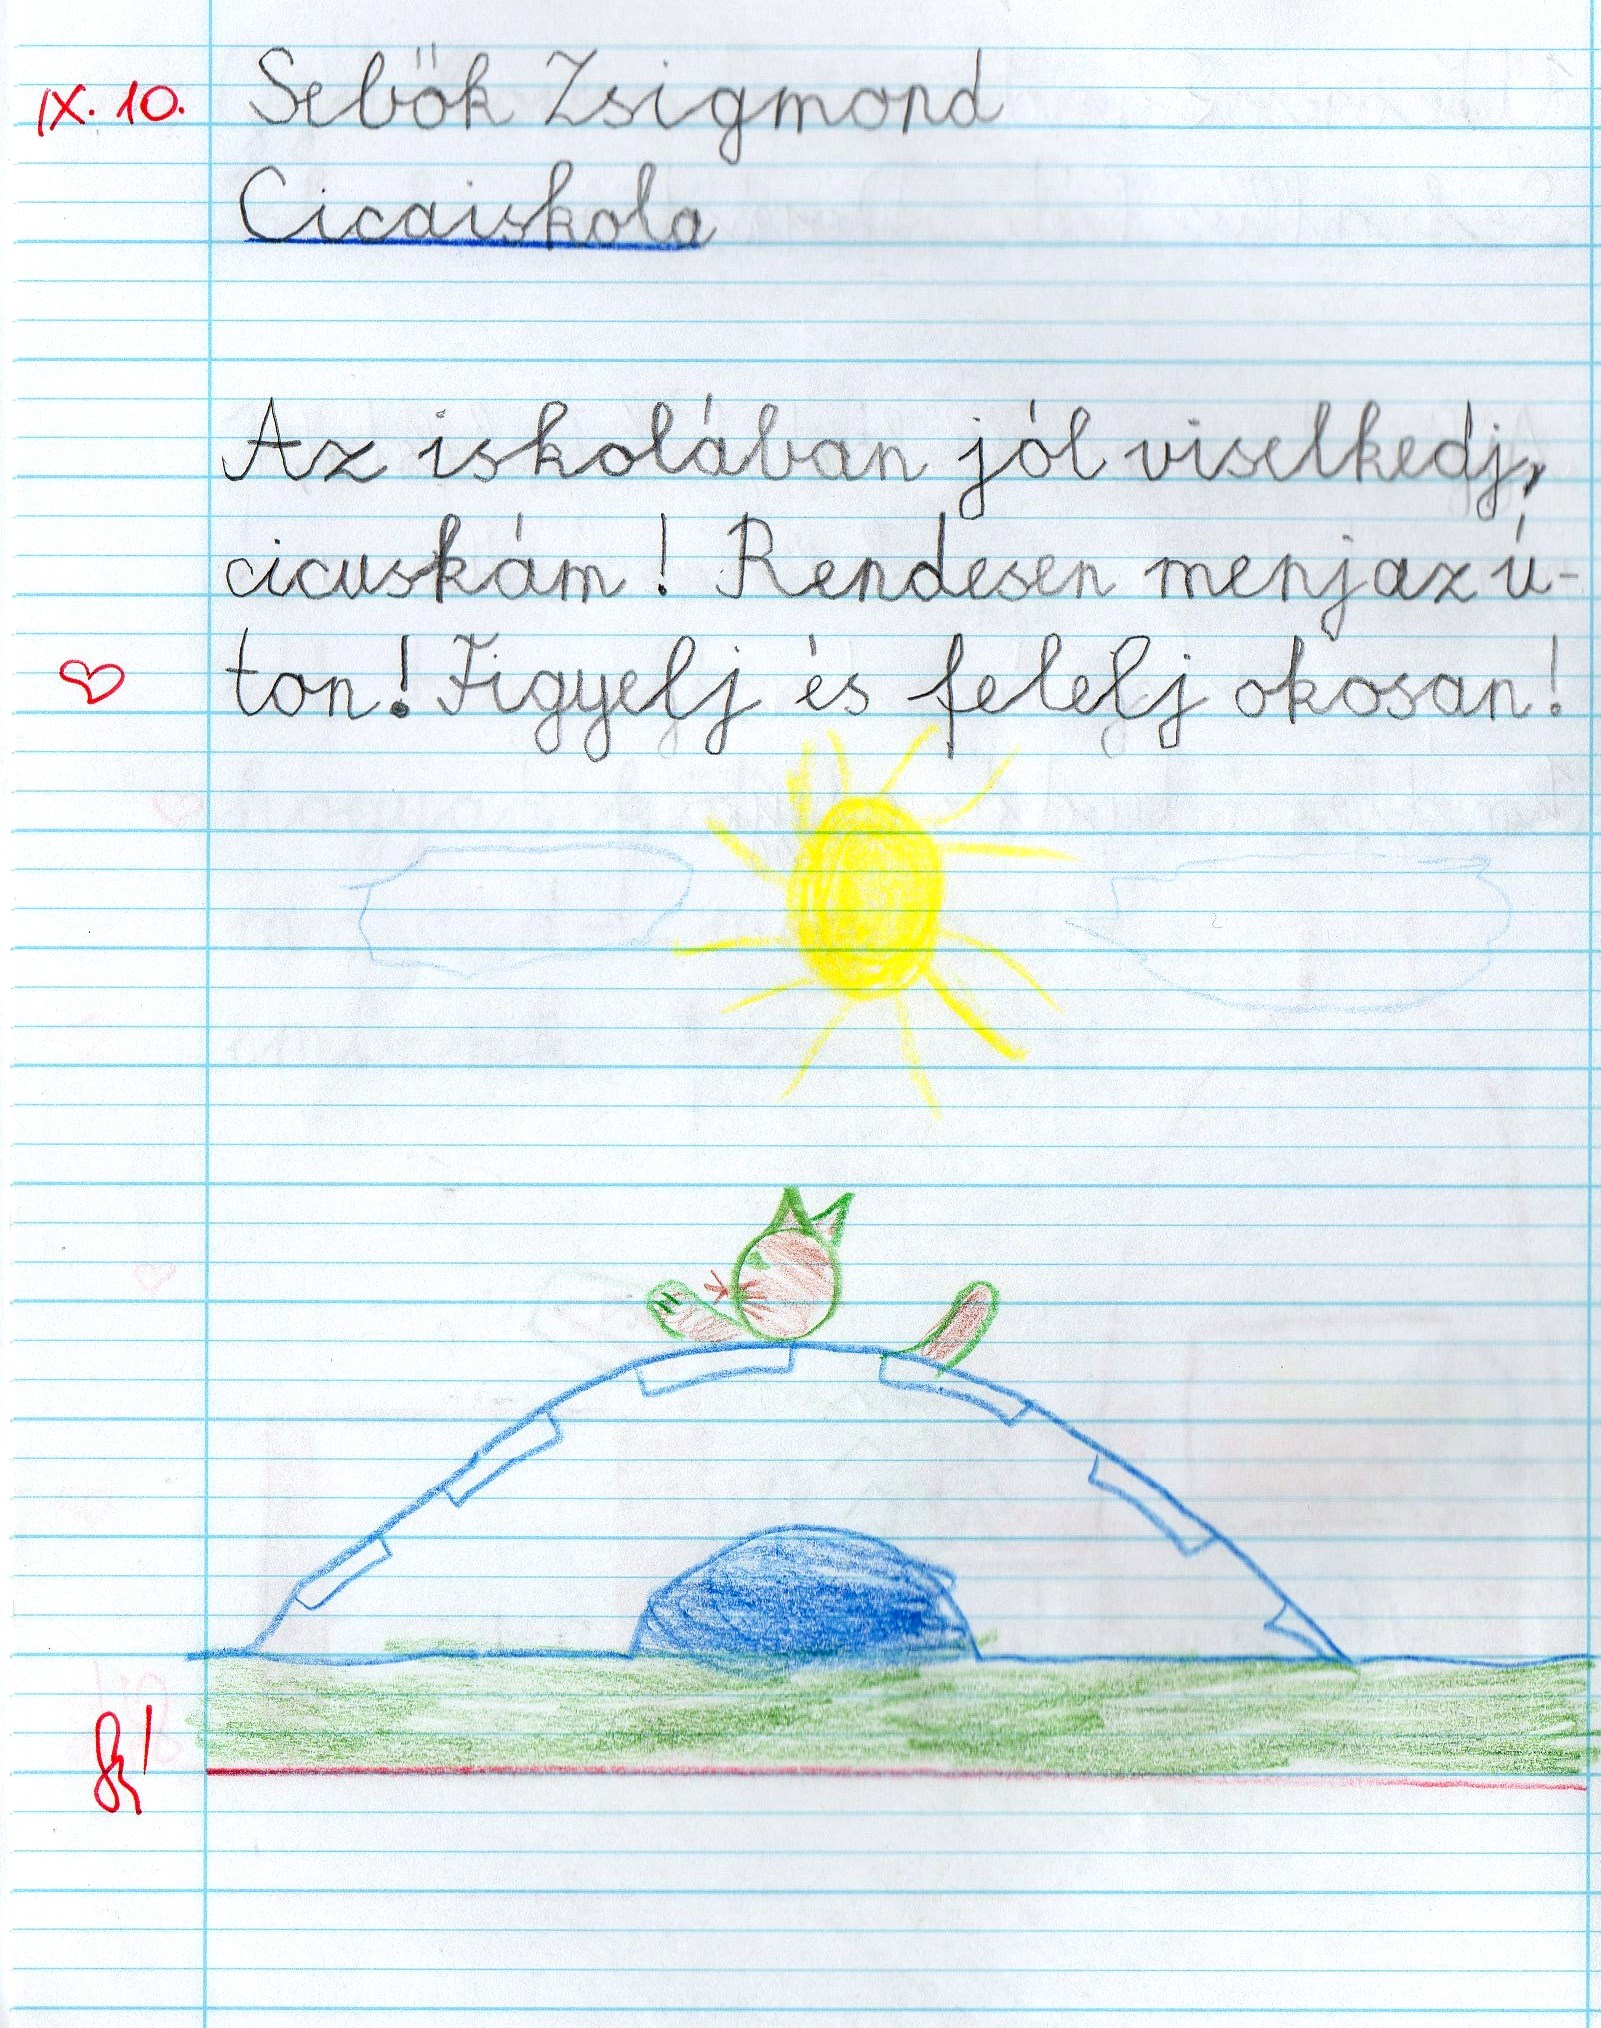 IX. 10. Sebők Zsigmond
Cicaiskola
Az iskolában jól viselkedj,
cicuskám! Rendesen menj az ú-
ton! Figyelj és felelj okosan!